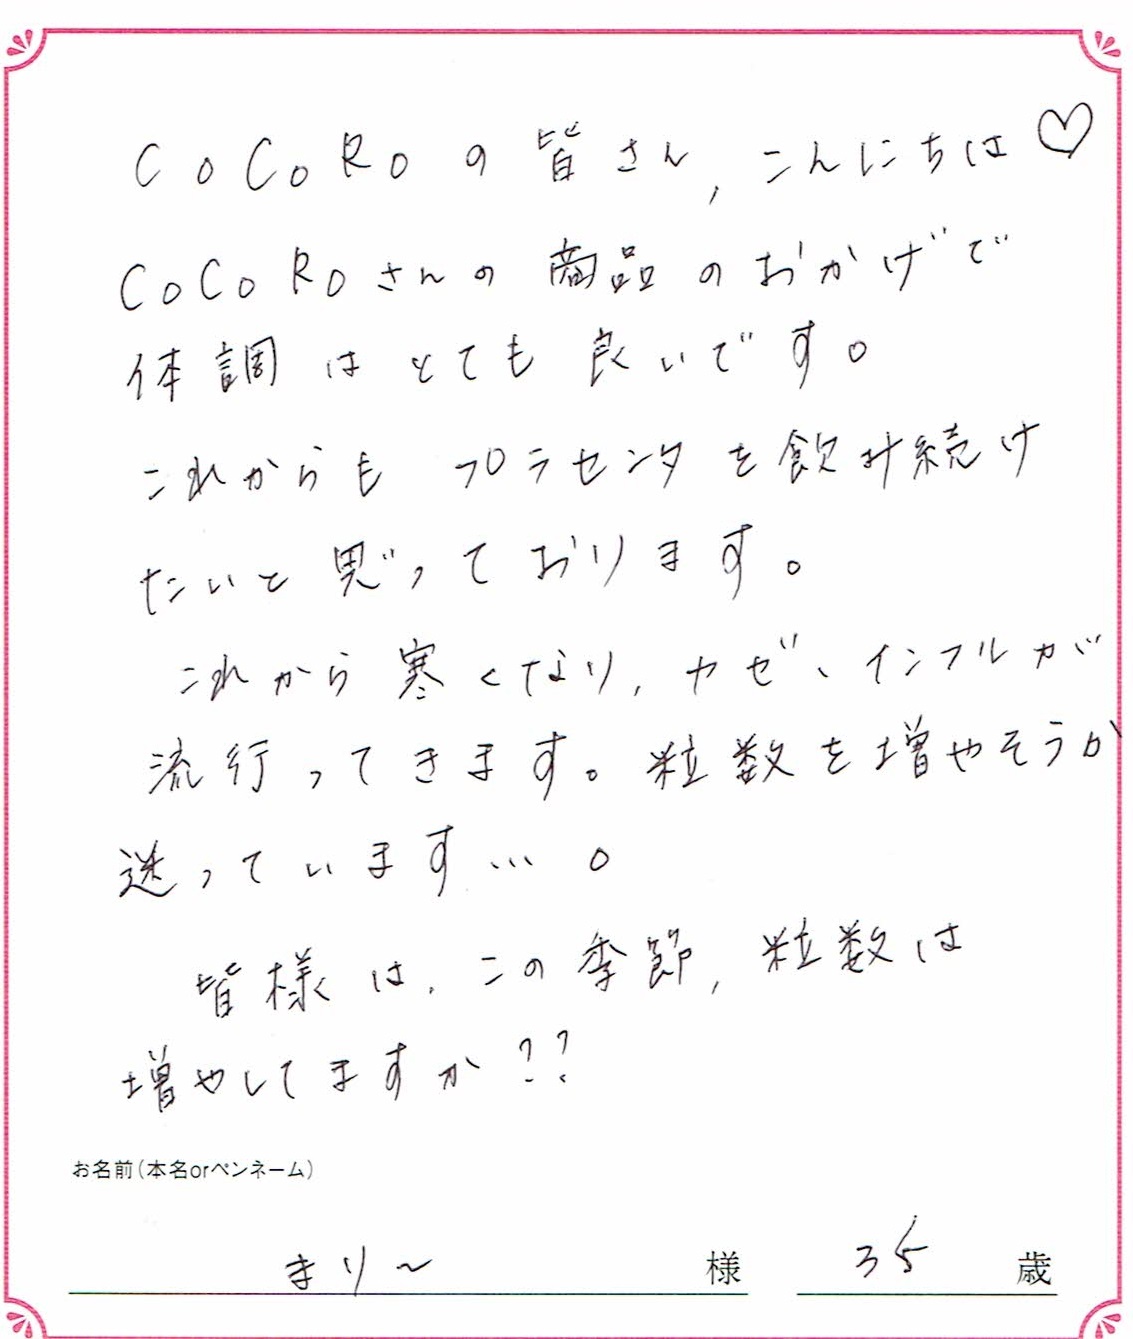 CoCoRoの皆さん、こんにちは♡
CoCoRoさんの商品のおかげで
体調はとても良いです。
これからも プラセンタを飲み続け
たいと思っております。
これから寒くなり、カゼ、インフルが
流行ってきます。粒数を増やそうか
迷っています…。
皆様は、この季節、粒数は
増やしてますか??
お名前(本名orペンネーム)
まり〜 様 35 歳